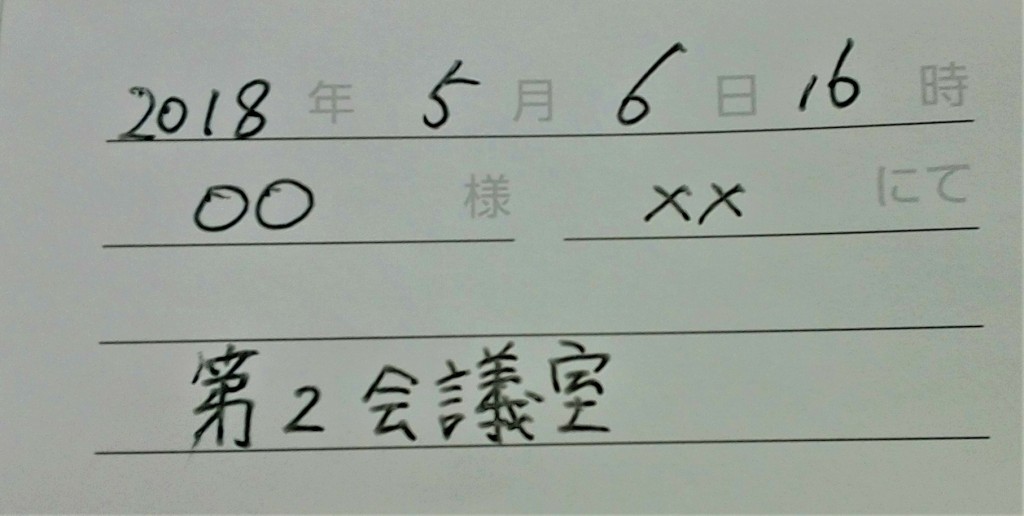 2018年 5月 6日 16時
〇〇 様 ×× にて
第2会議室